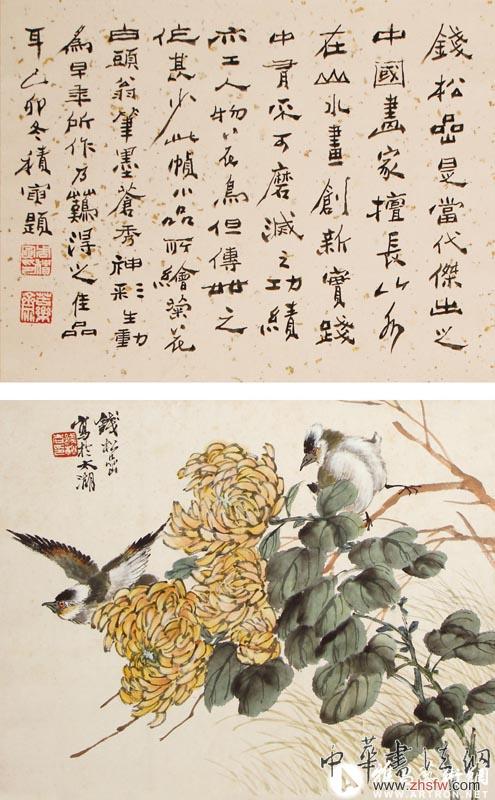 錢松喦是當代傑出之
中國畫家擅長山水
在山水畫創新實踐
中有不可磨滅之功績
亦工人物花鳥但傳世之
作甚少此幀小品所繪菊花
白頭翁筆墨蒼秀神彩生動
為早年所作乃難得之佳品
耳己卯冬積寅題
錢松喦
寫於太湖
中華書法網
www.zhsfw.com